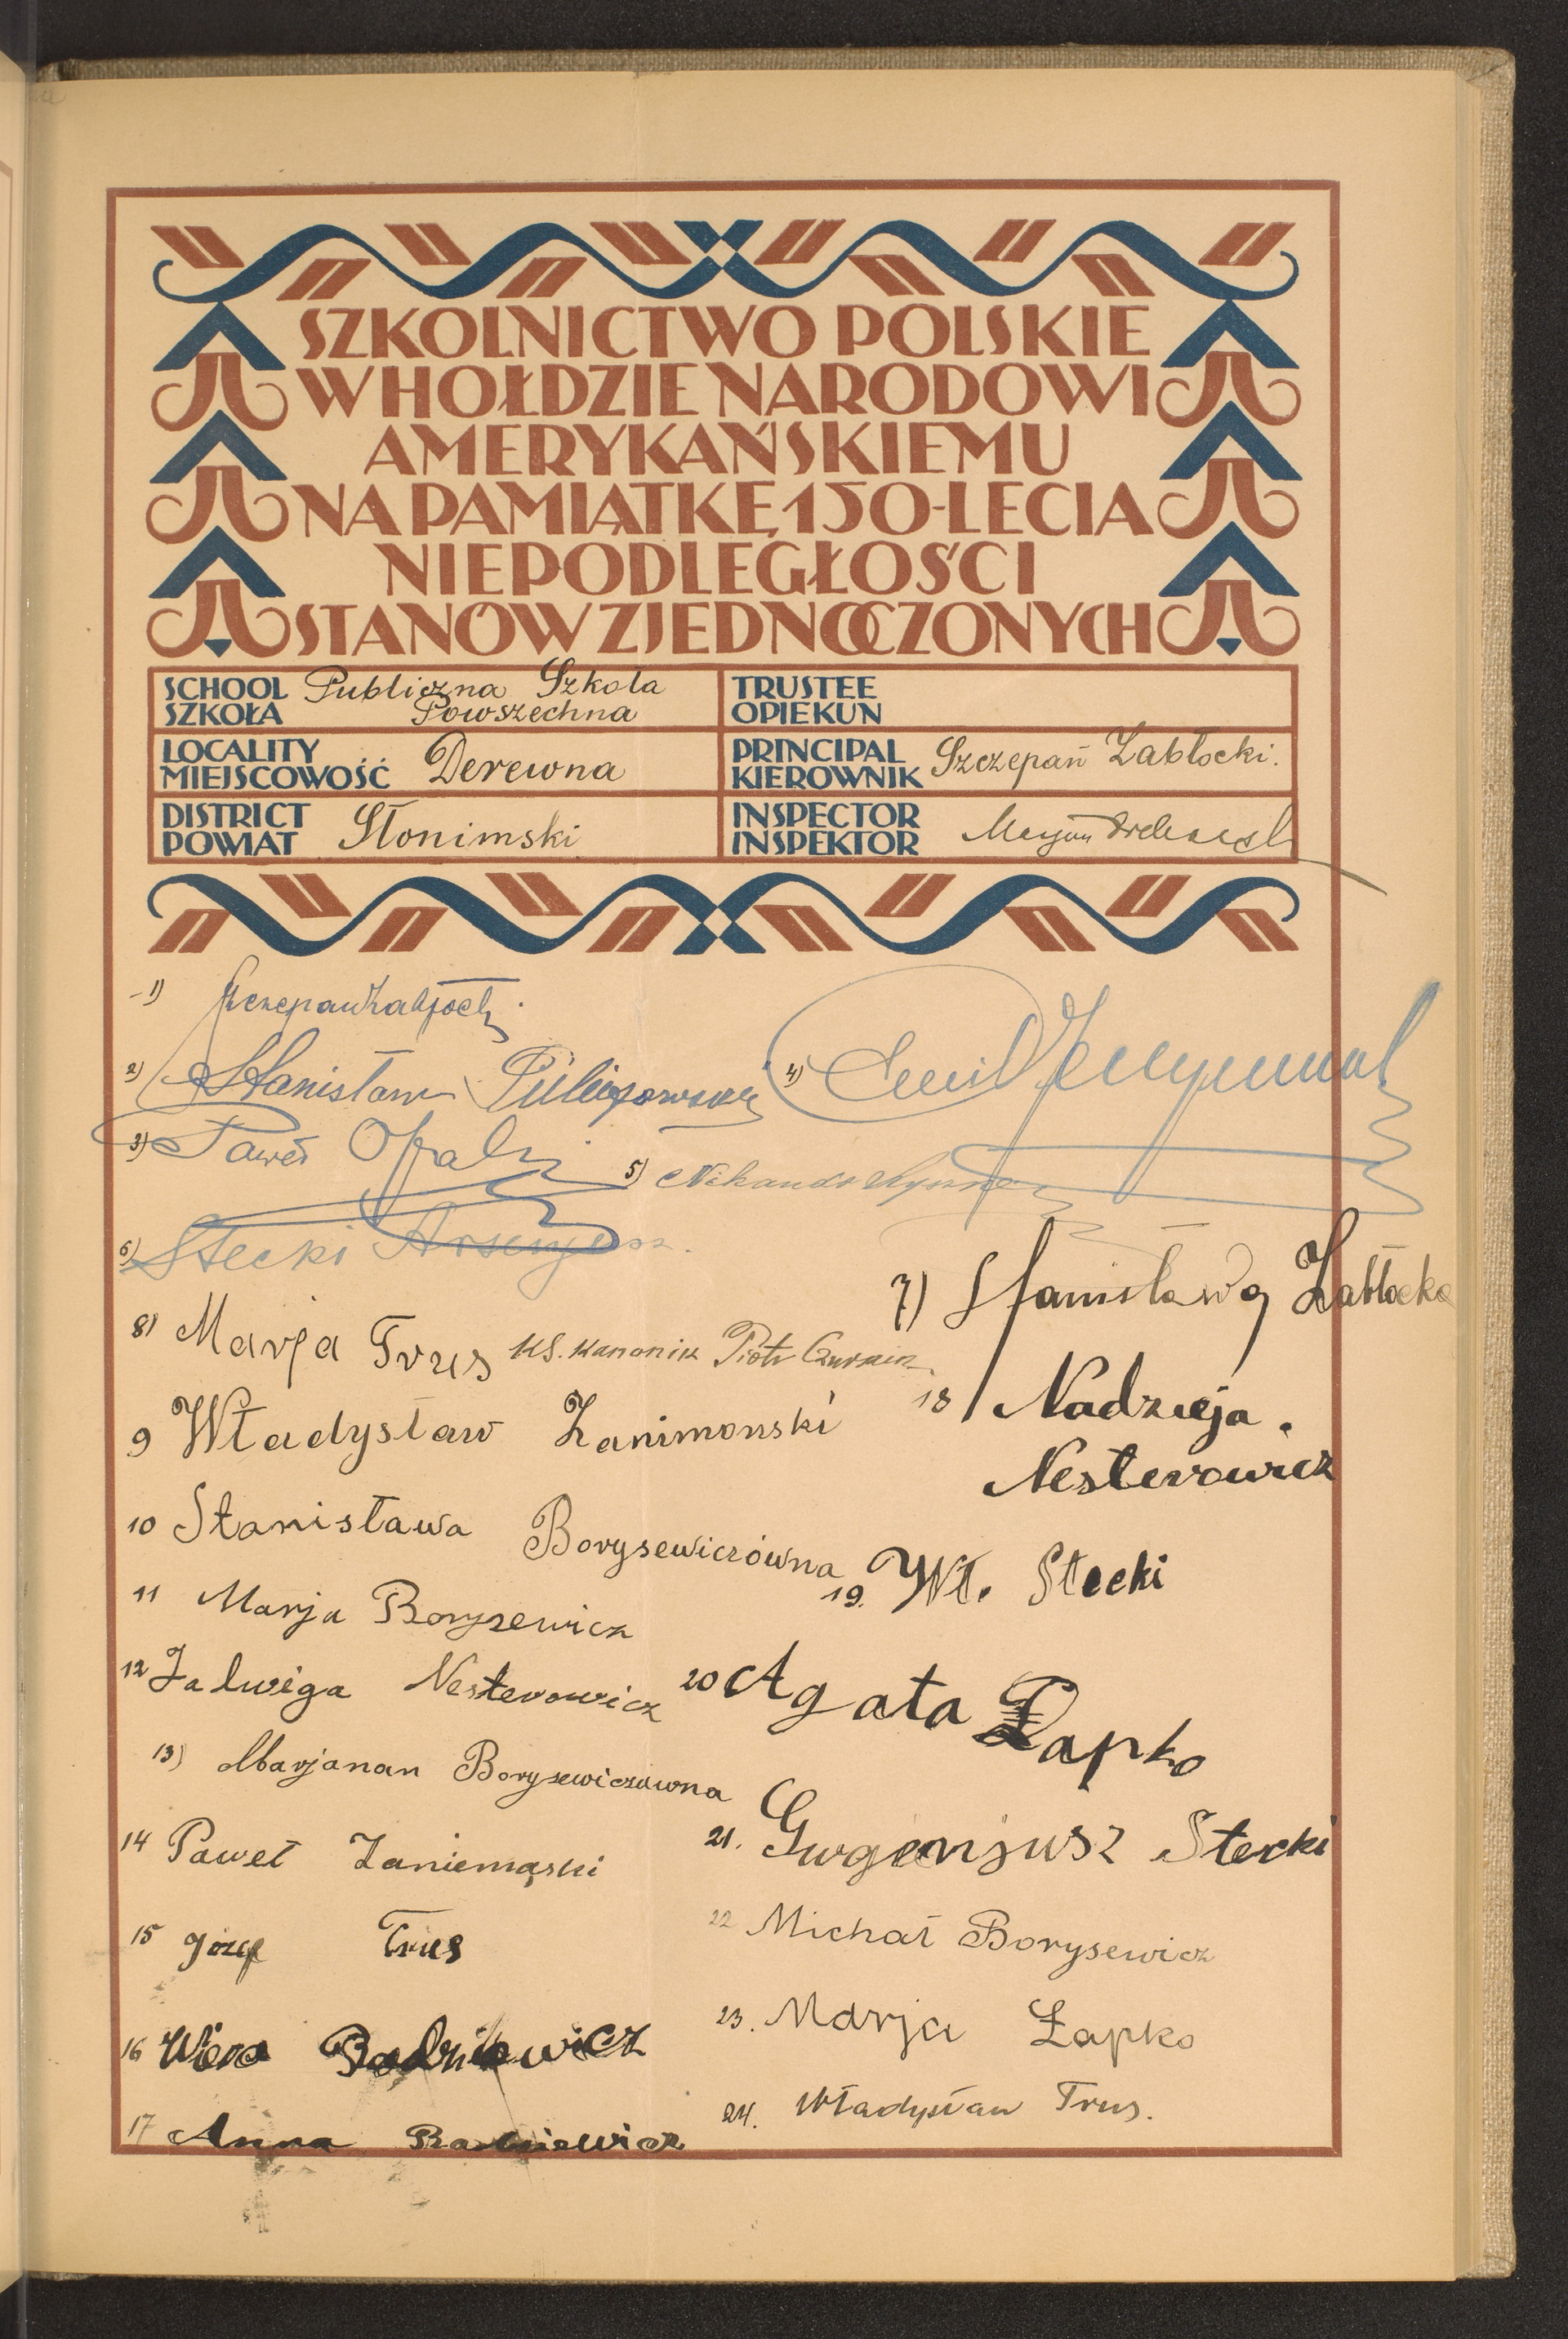 SZKOLNICTWO POLSKIE
W HOŁDZIE NARODOWI
AMERYKAŃSKIEMU
NA PAMIĄTKĘ 150-LECIA
NIEPODLEGŁOŚCI
STANÓW ZJEDNOCZONYCH
SCHOOL Publiczna Szkoła
SZKOŁA Powszechna
TRUSTEE
OPIEKUN
LOCALITY
MIEJSCOWOŚĆ Derewna
PRINCIPAL
KIEROWNIK Szczepań Zabłocki.
DISTRICT
POWIAT Słonimski
INSPECTOR
INSPEKTOR
1)
2) Stanisław
3) Paweł
4) Emil
5)
6) Stecki
7) Stanisława Zabłocka
8) Marja Trus Ks. Kanonik Piotr
9 Władysław Zanimonski
10 Stanisława Borysewiczówna
11 Marja Borysewicz
12 Jadwiga Nesterowicz
13) Marjanan Borysewiczówna
14 Paweł Zaniemąski
15 Józef Trus
16 Wiera
17 Anna
18) Nadzieja.
Nesterowicz
19. Wł. Stecki
20 Agata Łapko
21. Eugenjusz Stecki
22 Michał Borysewicz
23. Marja Łapko
24. Władysław Trus.